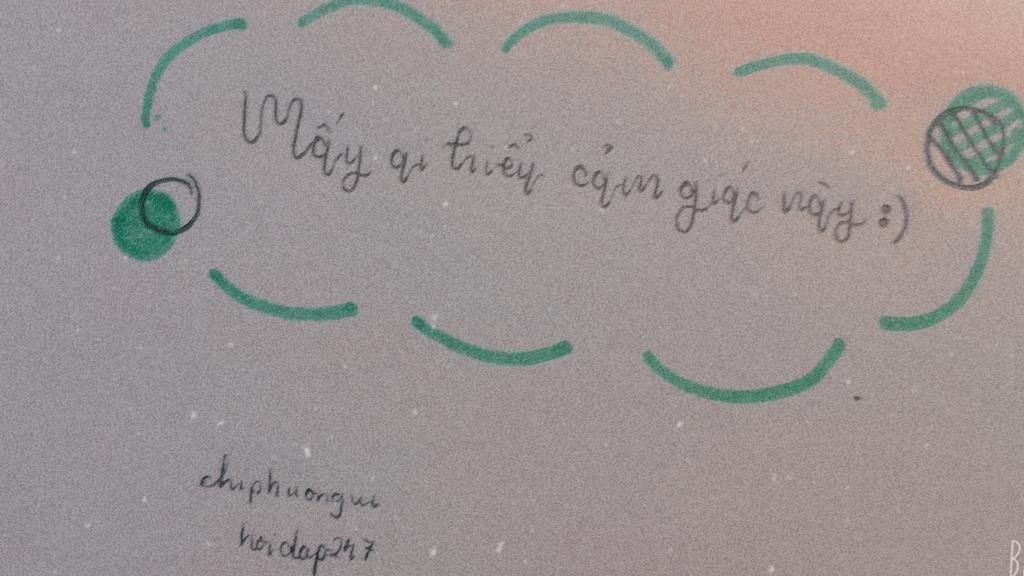 Mấy ai hiểu cảm giác này :)
chiphuongvu
hoidap247
B